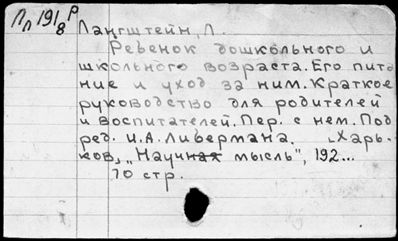 Пп 191/8 Р
Лангштейн, Л.
Ребенок дошкольного и
школьного возраста. Его пита
ние и уход за ним. Краткое
руководство для родителей
и воспитателей. Пер. с нем. Под
ред. И.А. Ливермана. [Харь-
ков], „Научная мысль", 192...
70 стр.